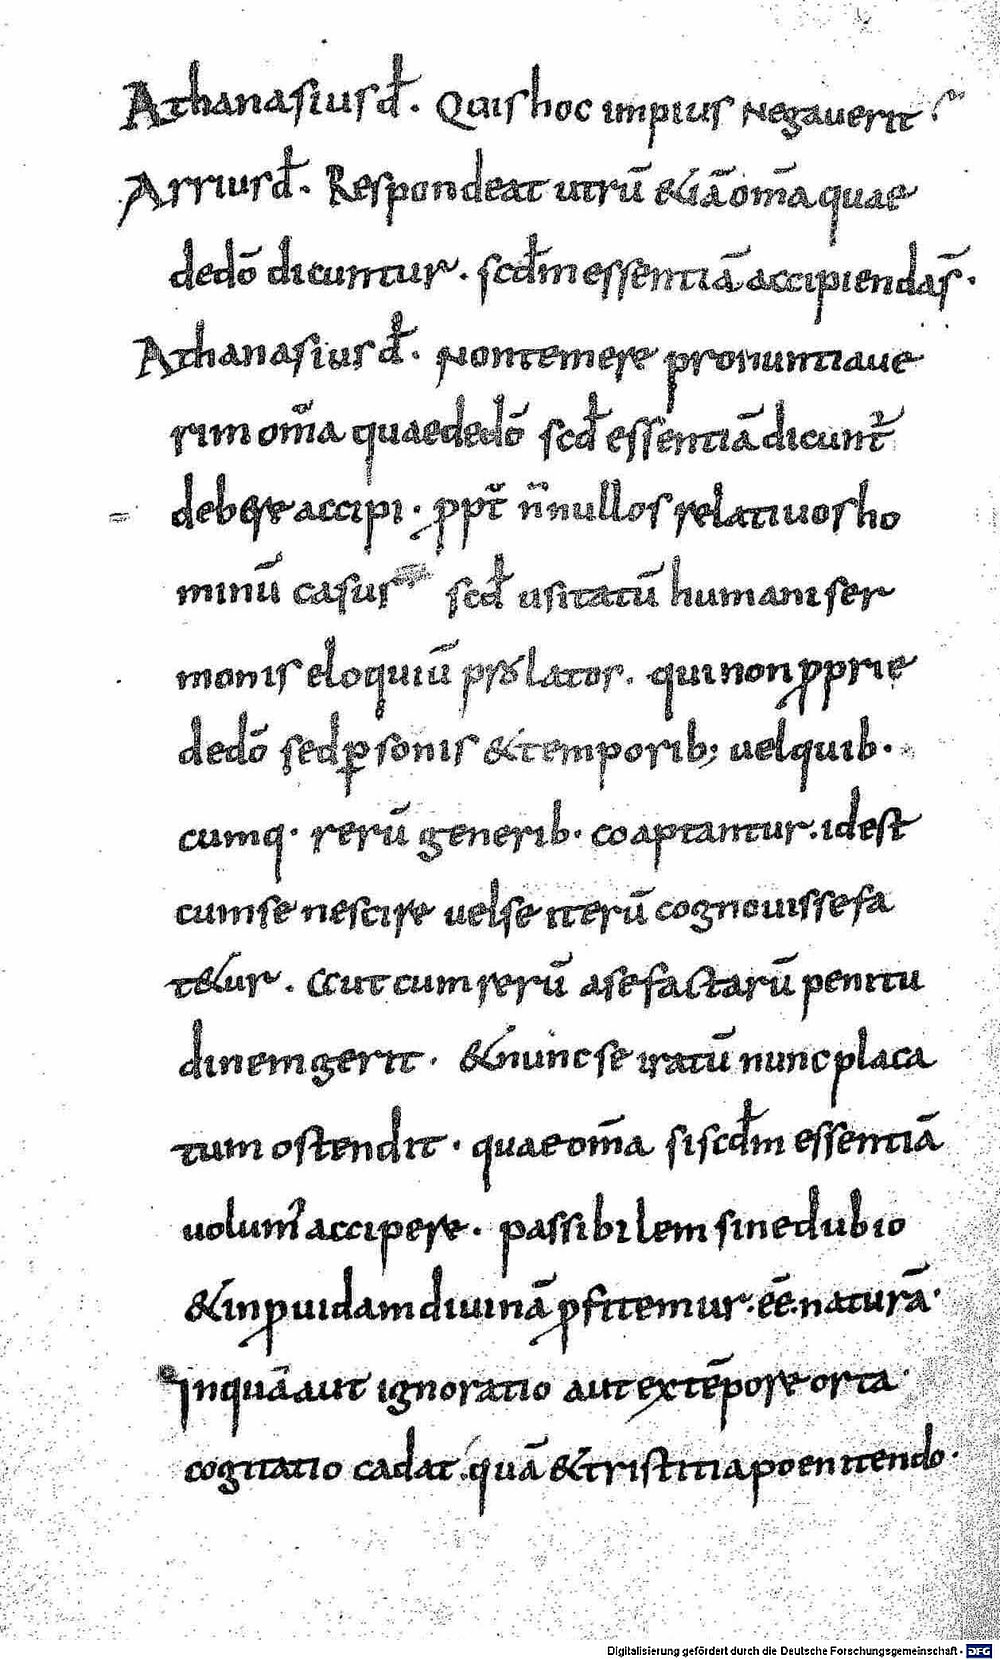 Athanasius dł. Quis hoc impius Negauerit?
Arrius dł. Respondeat utrū &iā om̄a quae
de dō dicuntur. scd̄m essentiā accipienda s̄.
Athanasius dł. Non temere pronuntiaue
rim om̄a quae de dō scd̄ essentiā dicunt̄
debere accipi. ꝓpt̄ n̄nullos relatiuos ho
minū casus scd̄ usitatū humani ser
monis eloquiū platos. qui non ꝓprie
de dō sed ꝑsonis & temporib; uel quib.
cumq. rerū generib. coaptantur. id est
cum se nescire uel se iterū cognouisse fa
t&ur. aut cum rerū a se factarū penitu
dinem gerit. & nunc se iratū nunc placa
tum ostendit. quae om̄a si scd̄m essentiā
uolum' accipere. passibilem sine dubio
& inꝓuidam diuinā ꝓfitemur. eē. naturā.
In quā aut ignoratio aut ex tēpore orta
cogitatio cadat. quā & tristitia poenitendo.
Digitalisierung gefördert durch die Deutsche Forschungsgemeinschaft - DFG